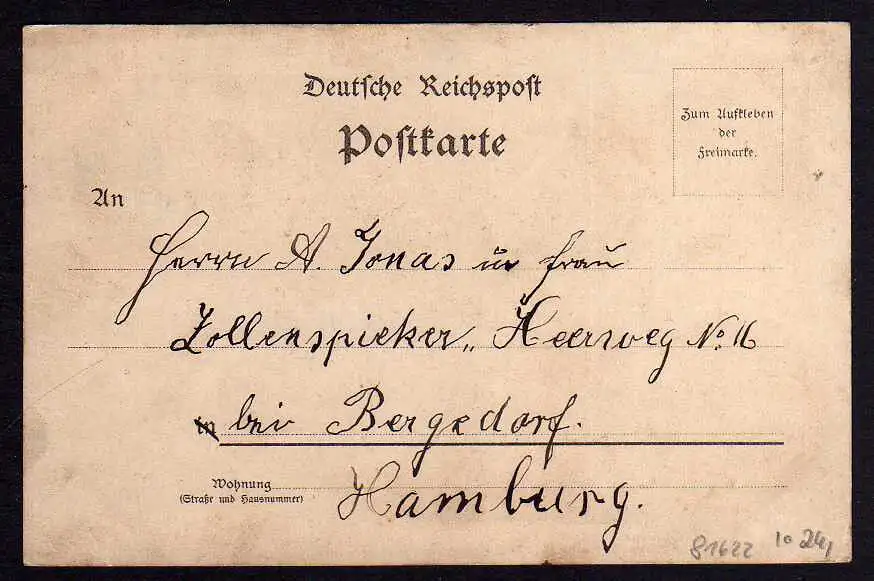 Deutsche Reichspost
Postkarte
Zum Aufkleben
der
Freimarke.
An
Herrn A. Jonas u Frau
Zollenspieker, Heerweg No 16
in bei Bergedorf.
Wohnung
(Straße und Hausnummer)
Hamburg.
81622
10 24,